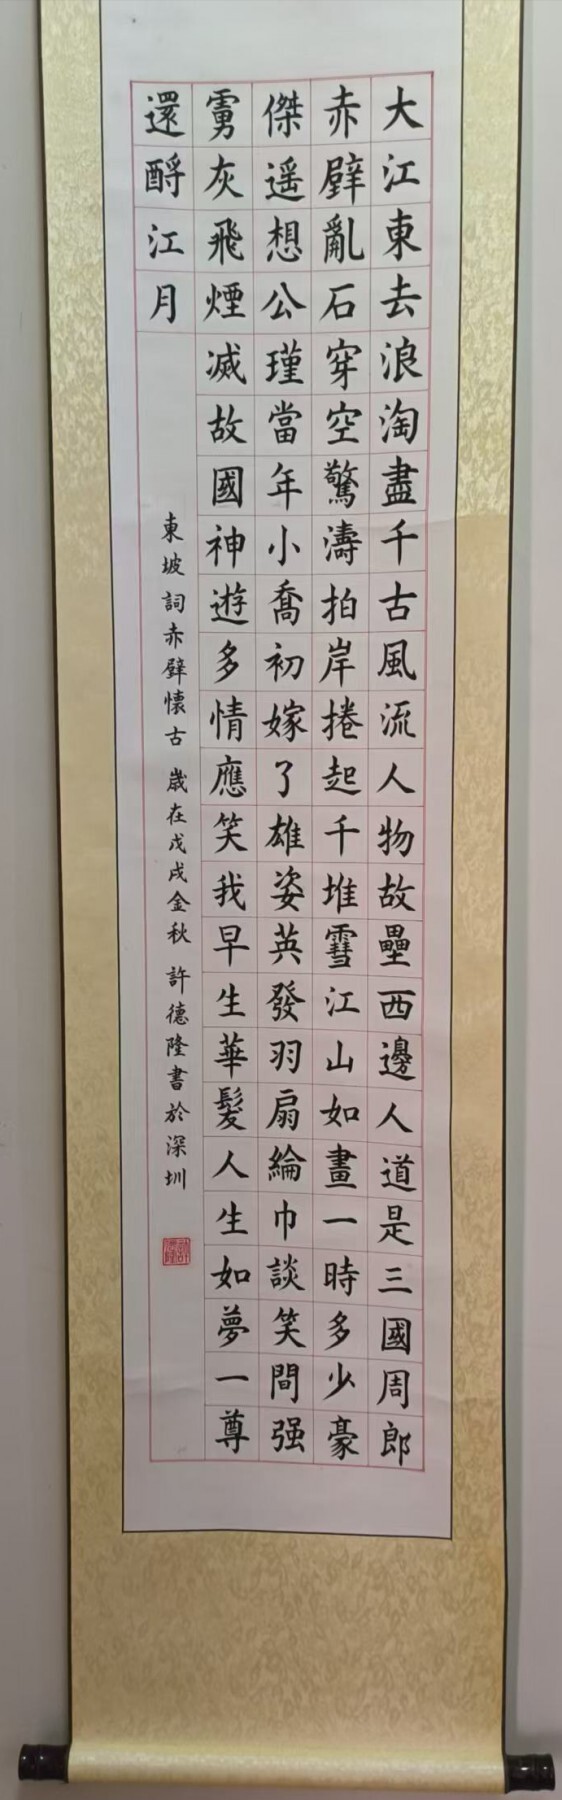 大江東去浪淘盡千古風流人物故壘西邊人道是三國周郎
赤壁亂石穿空驚濤拍岸捲起千堆雪江山如畫一時多少豪
傑遥想公瑾當年小喬初嫁了雄姿英發羽扇綸巾談笑間强
虜灰飛煙滅故國神遊多情應笑我早生華髮人生如夢一尊
還酹江月
東坡詞赤壁懷古 歲在戊戌金秋 許德隆書於深圳